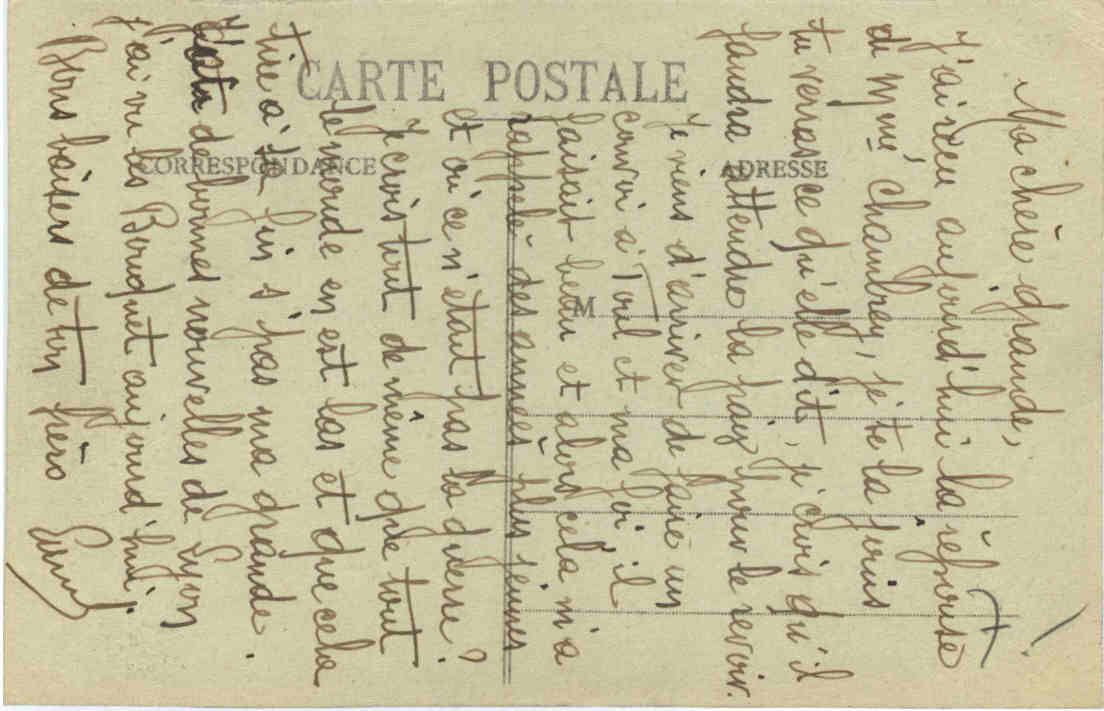 CARTE POSTALE
CORRESPONDANCE
ADRESSE
M
Ma chère grande,
J'ai reçu aujourd'hui la réponse
de Mme Chambrey, je te la joins
tu verras ce qu'elle dit, je crois qu'il
faudra attendre la paix pour le revoir.
Je viens d'arriver de faire un
convoi à Toul et ma foi il
faisait beau et alors cela m'a
rappelé des années plus jeunes
et où ce n'était pas la guerre!
Je crois tout de même que tout
le monde en est las et que cela
tire à la fin s'pas ma grande.
de bonnes nouvelles de Lyon
j'ai vu les Bouquet aujourd'hui.
Bons baisers de ton frère
7